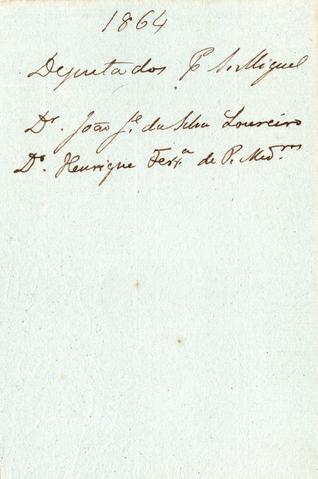 1864
Deputados P S. Miguel
Dr. João Je. da Silva Loureiro
Dr. Henrique Ferra. de P. Medros